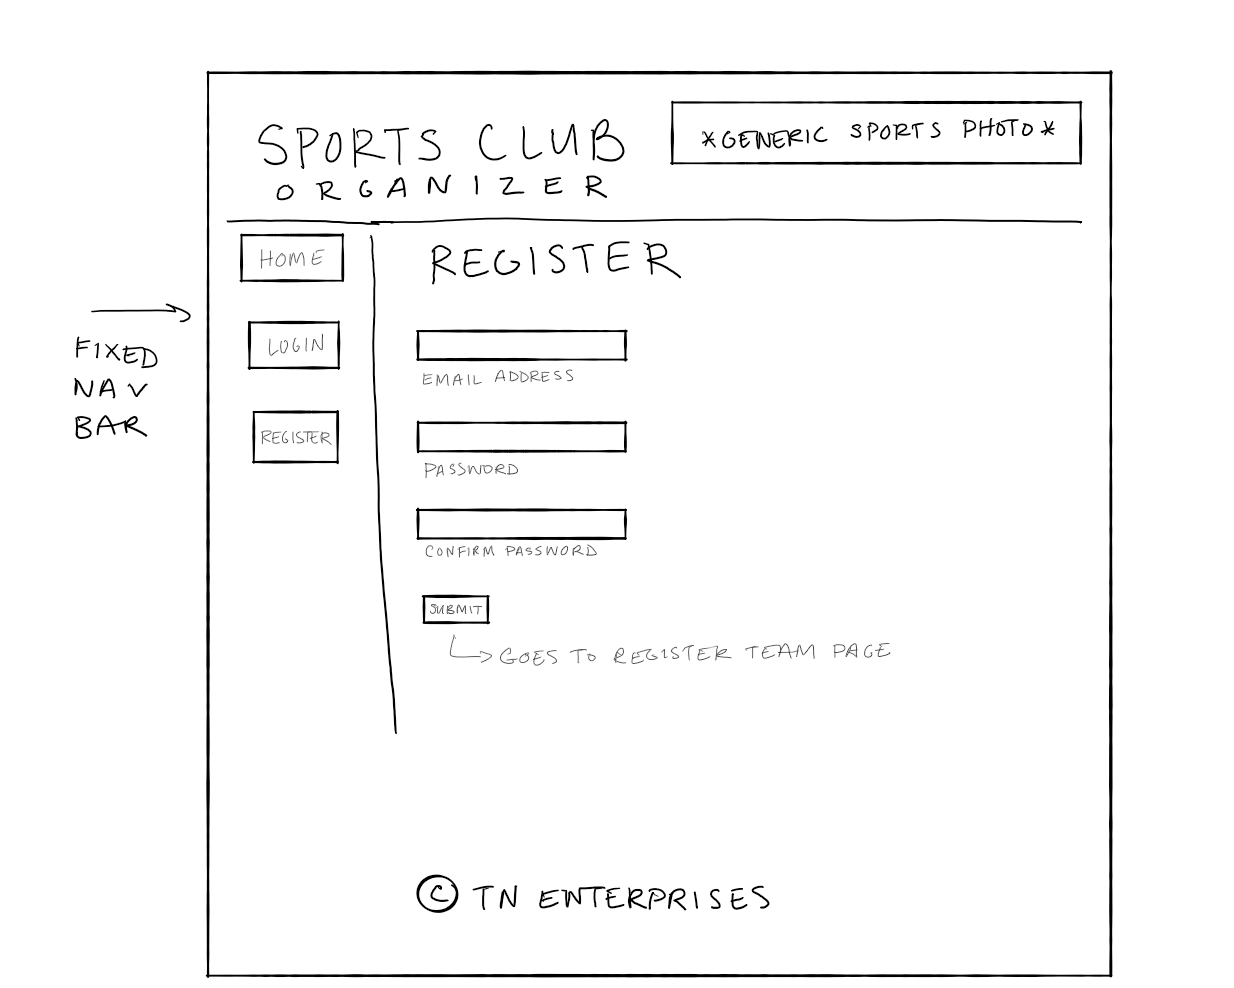 SPORTS CLUB
ORGANIZER
*GENERIC SPORTS PHOTO*
HOME
LOGIN
REGISTER
FIXED
NAV
BAR
REGISTER
EMAIL ADDRESS
PASSWORD
CONFIRM PASSWORD
SUBMIT
GOES TO REGISTER TEAM PAGE
© TN ENTERPRISES